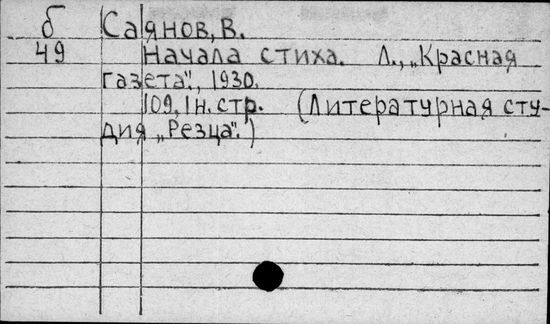 б Саянов, В.
49 Начала стиха. Л., „Красная
газета", 1930.
109, 1 н. стр. (Литературная сту-
дия „Резца".)